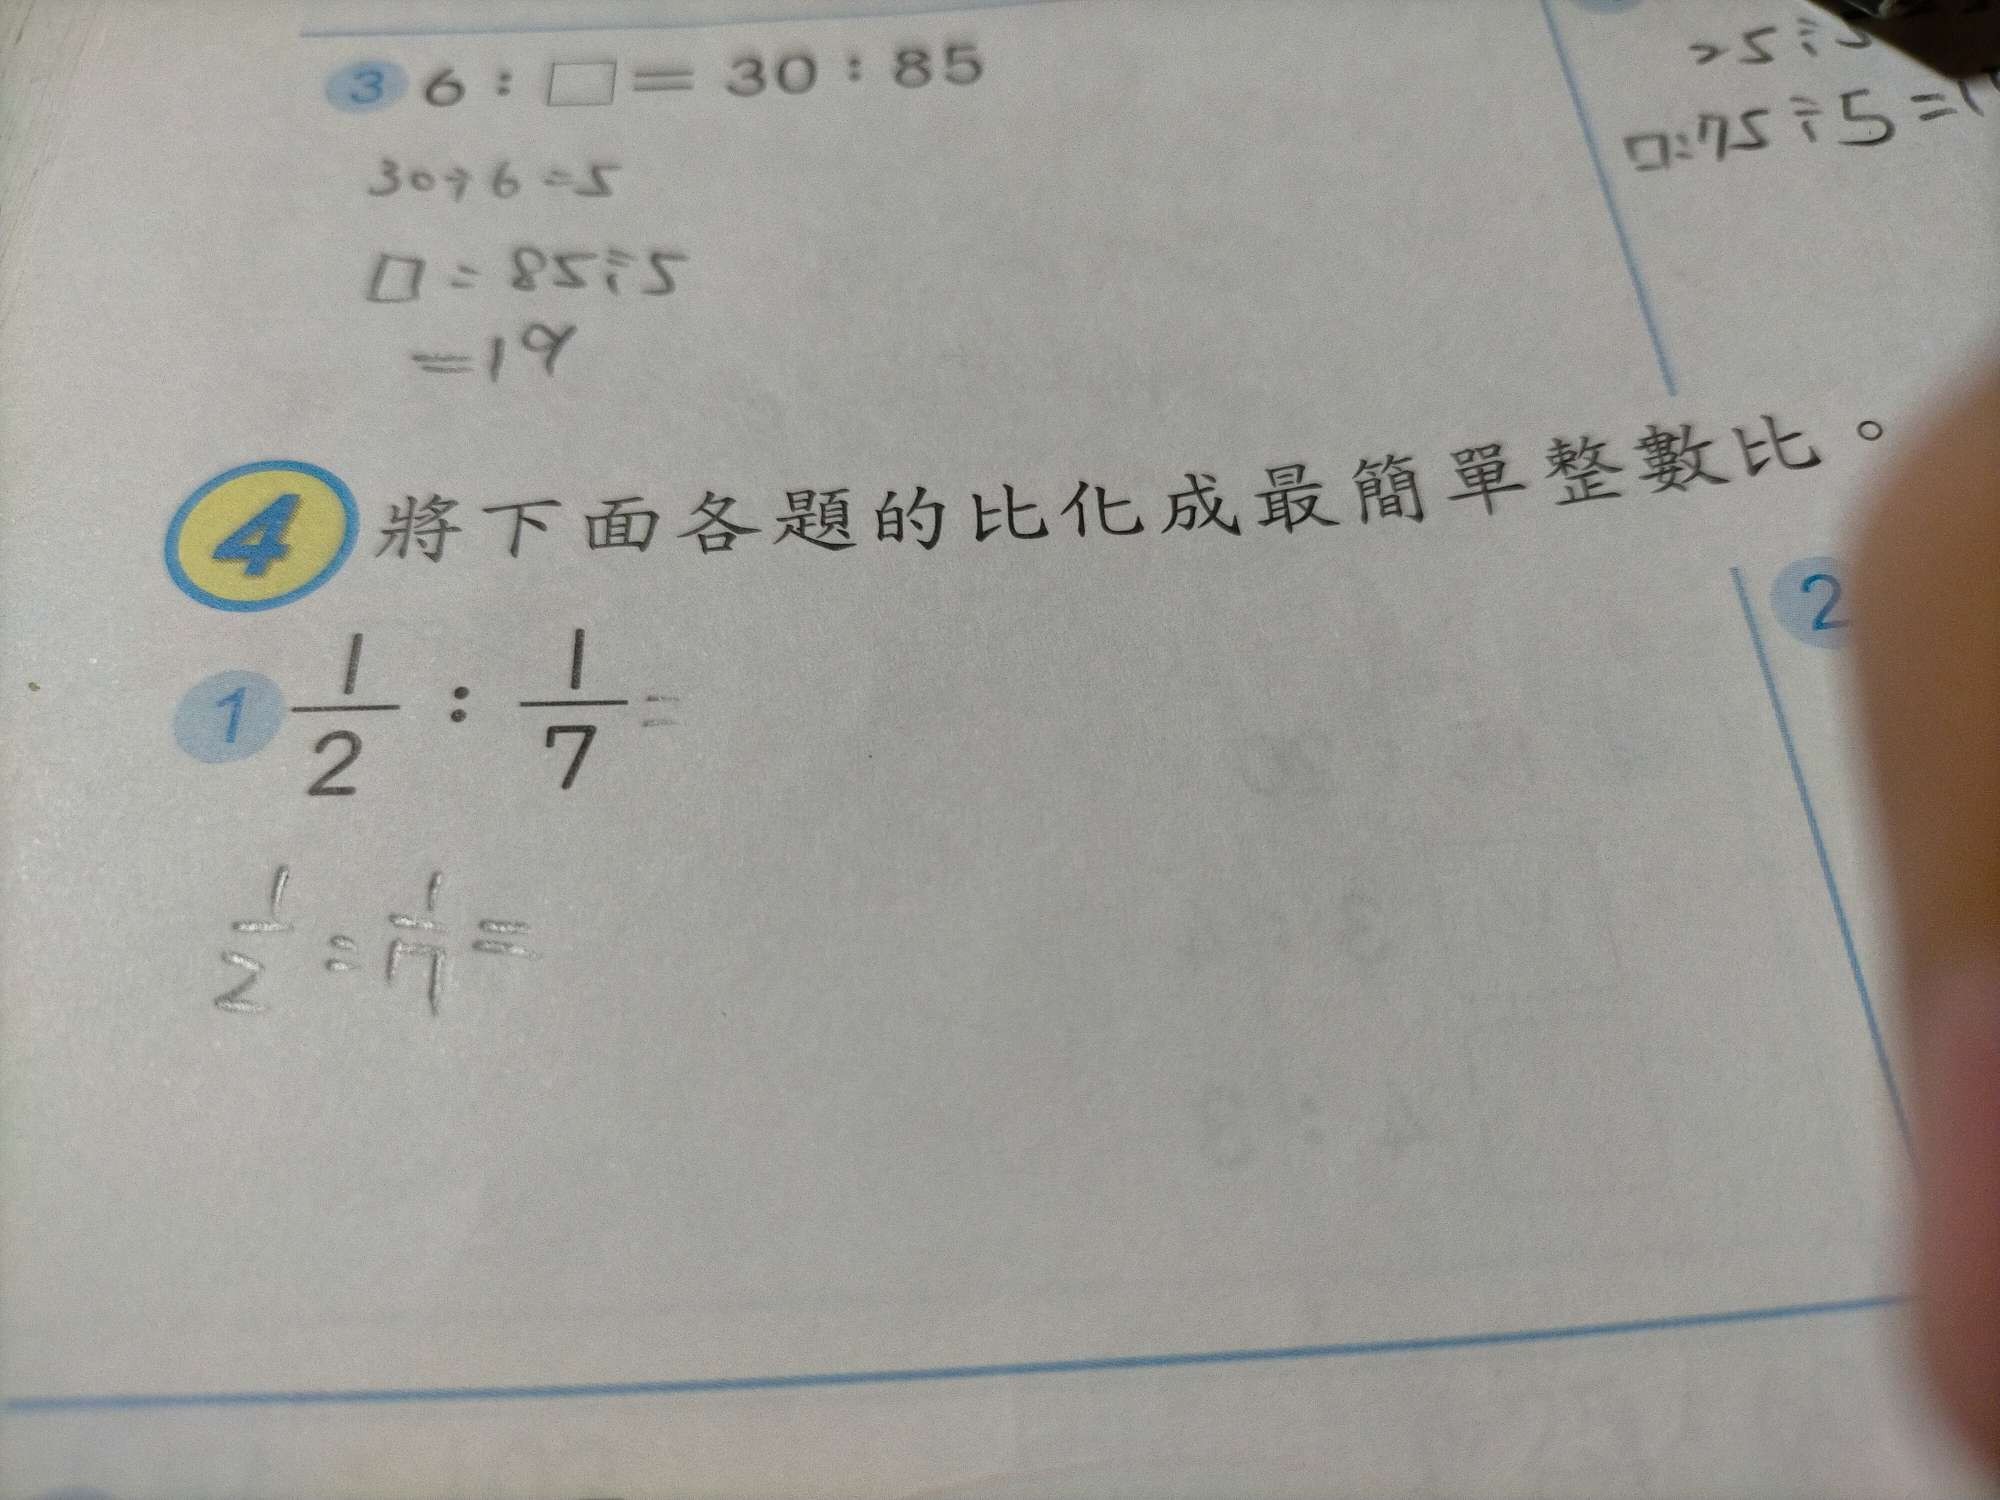 3 6：□＝30：85
30÷6=5
□=85÷5
=19
25÷5
□:75÷5=1
4 將下面各題的比化成最簡單整數比。
1 1/2：1/7=
2
1/2:1/7=